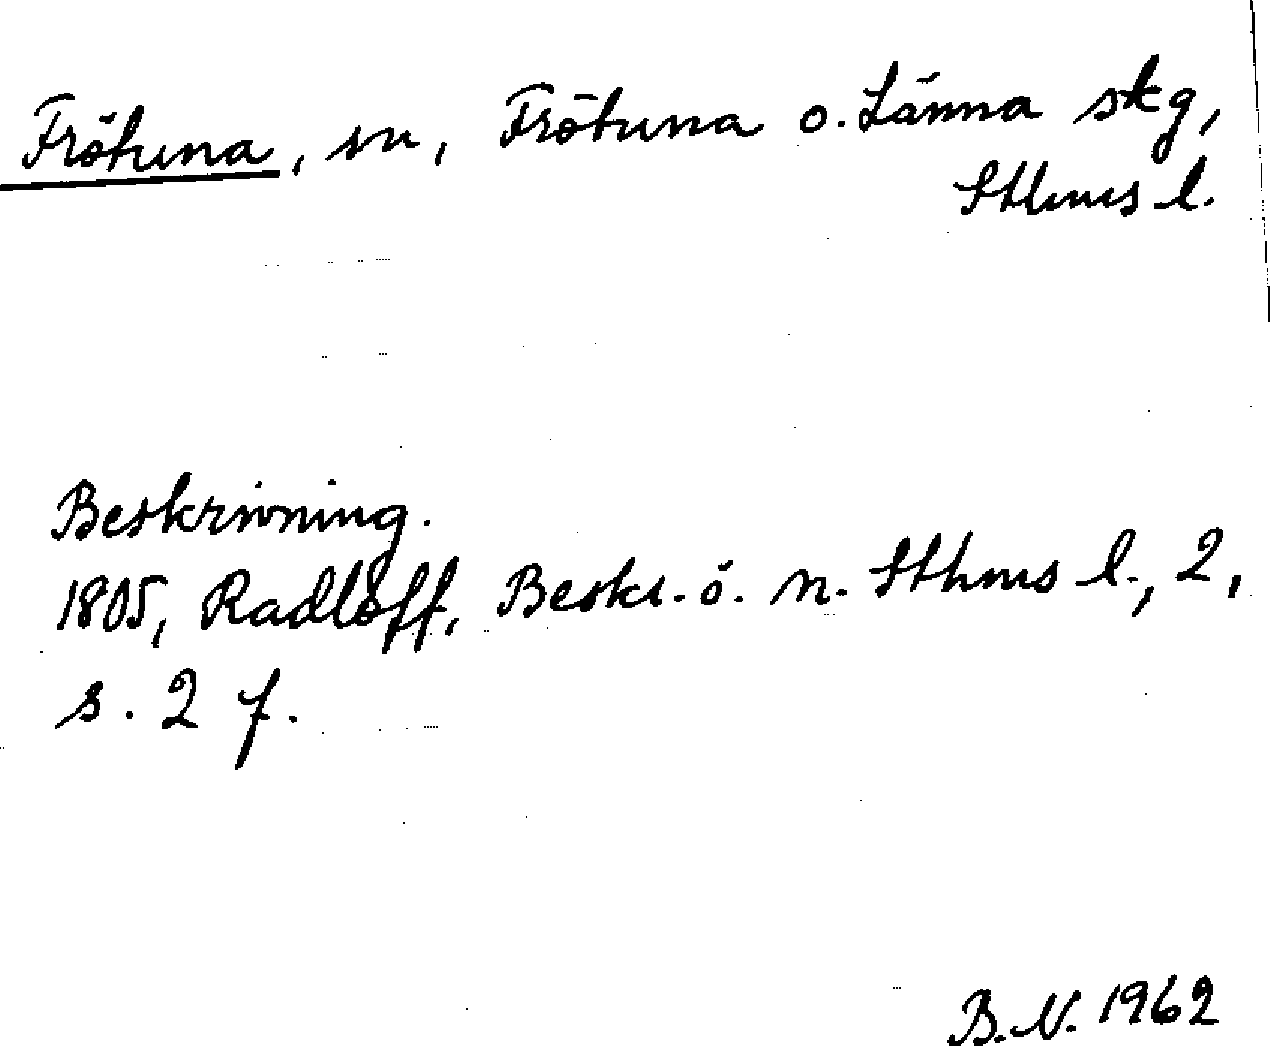 Frötuna, sn, Frötuna o. Länna skg,
Sthms l.
Beskrivning.
1805, Radloff, Beskr. ö. n. Sthms l., 2,
s. 2 f.
B.N. 1962